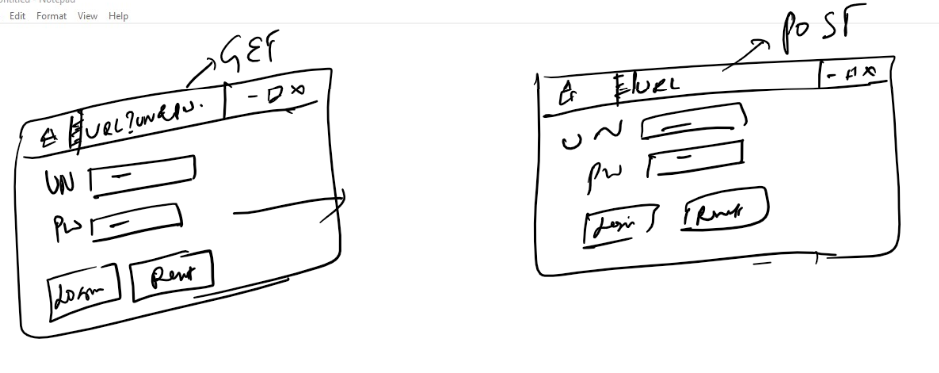 Untitled - Notepad
Edit Format View Help
GET
URL?UN&PW.
UN
PW
Login
Reset
POST
URL
UN
PW
Login
Reset